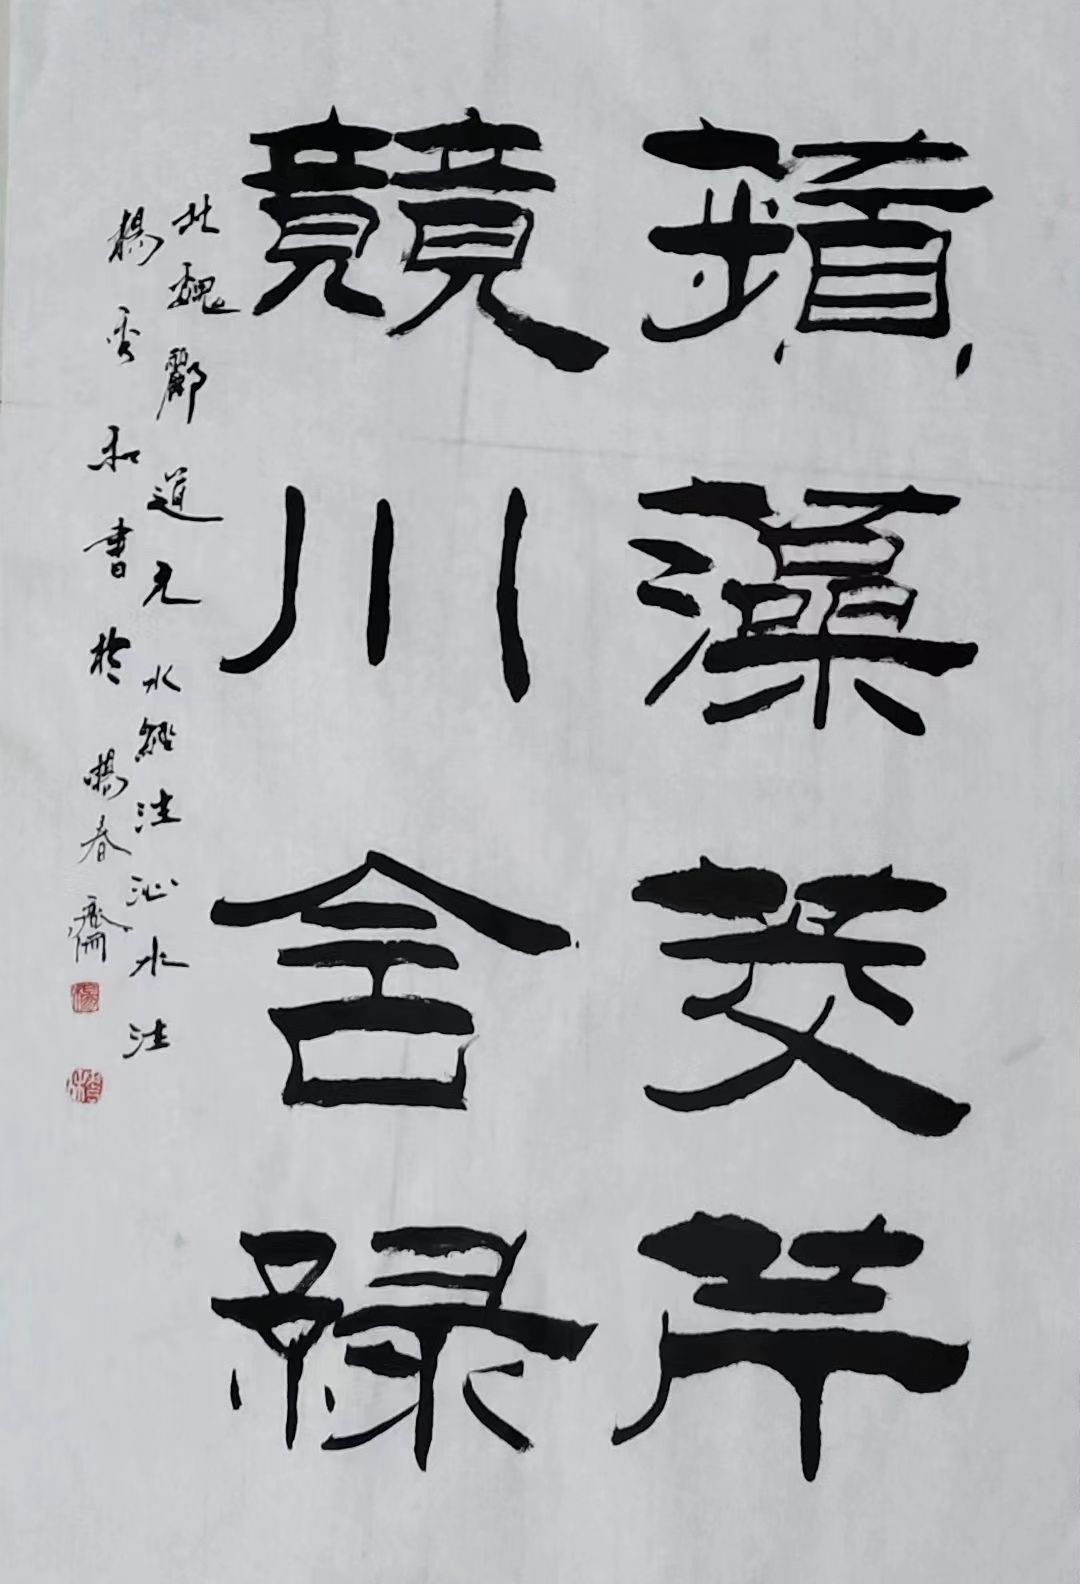 蘋藻茭芹
競川含綠
北魏酈道元水經注沁水注
楊和書於春齋